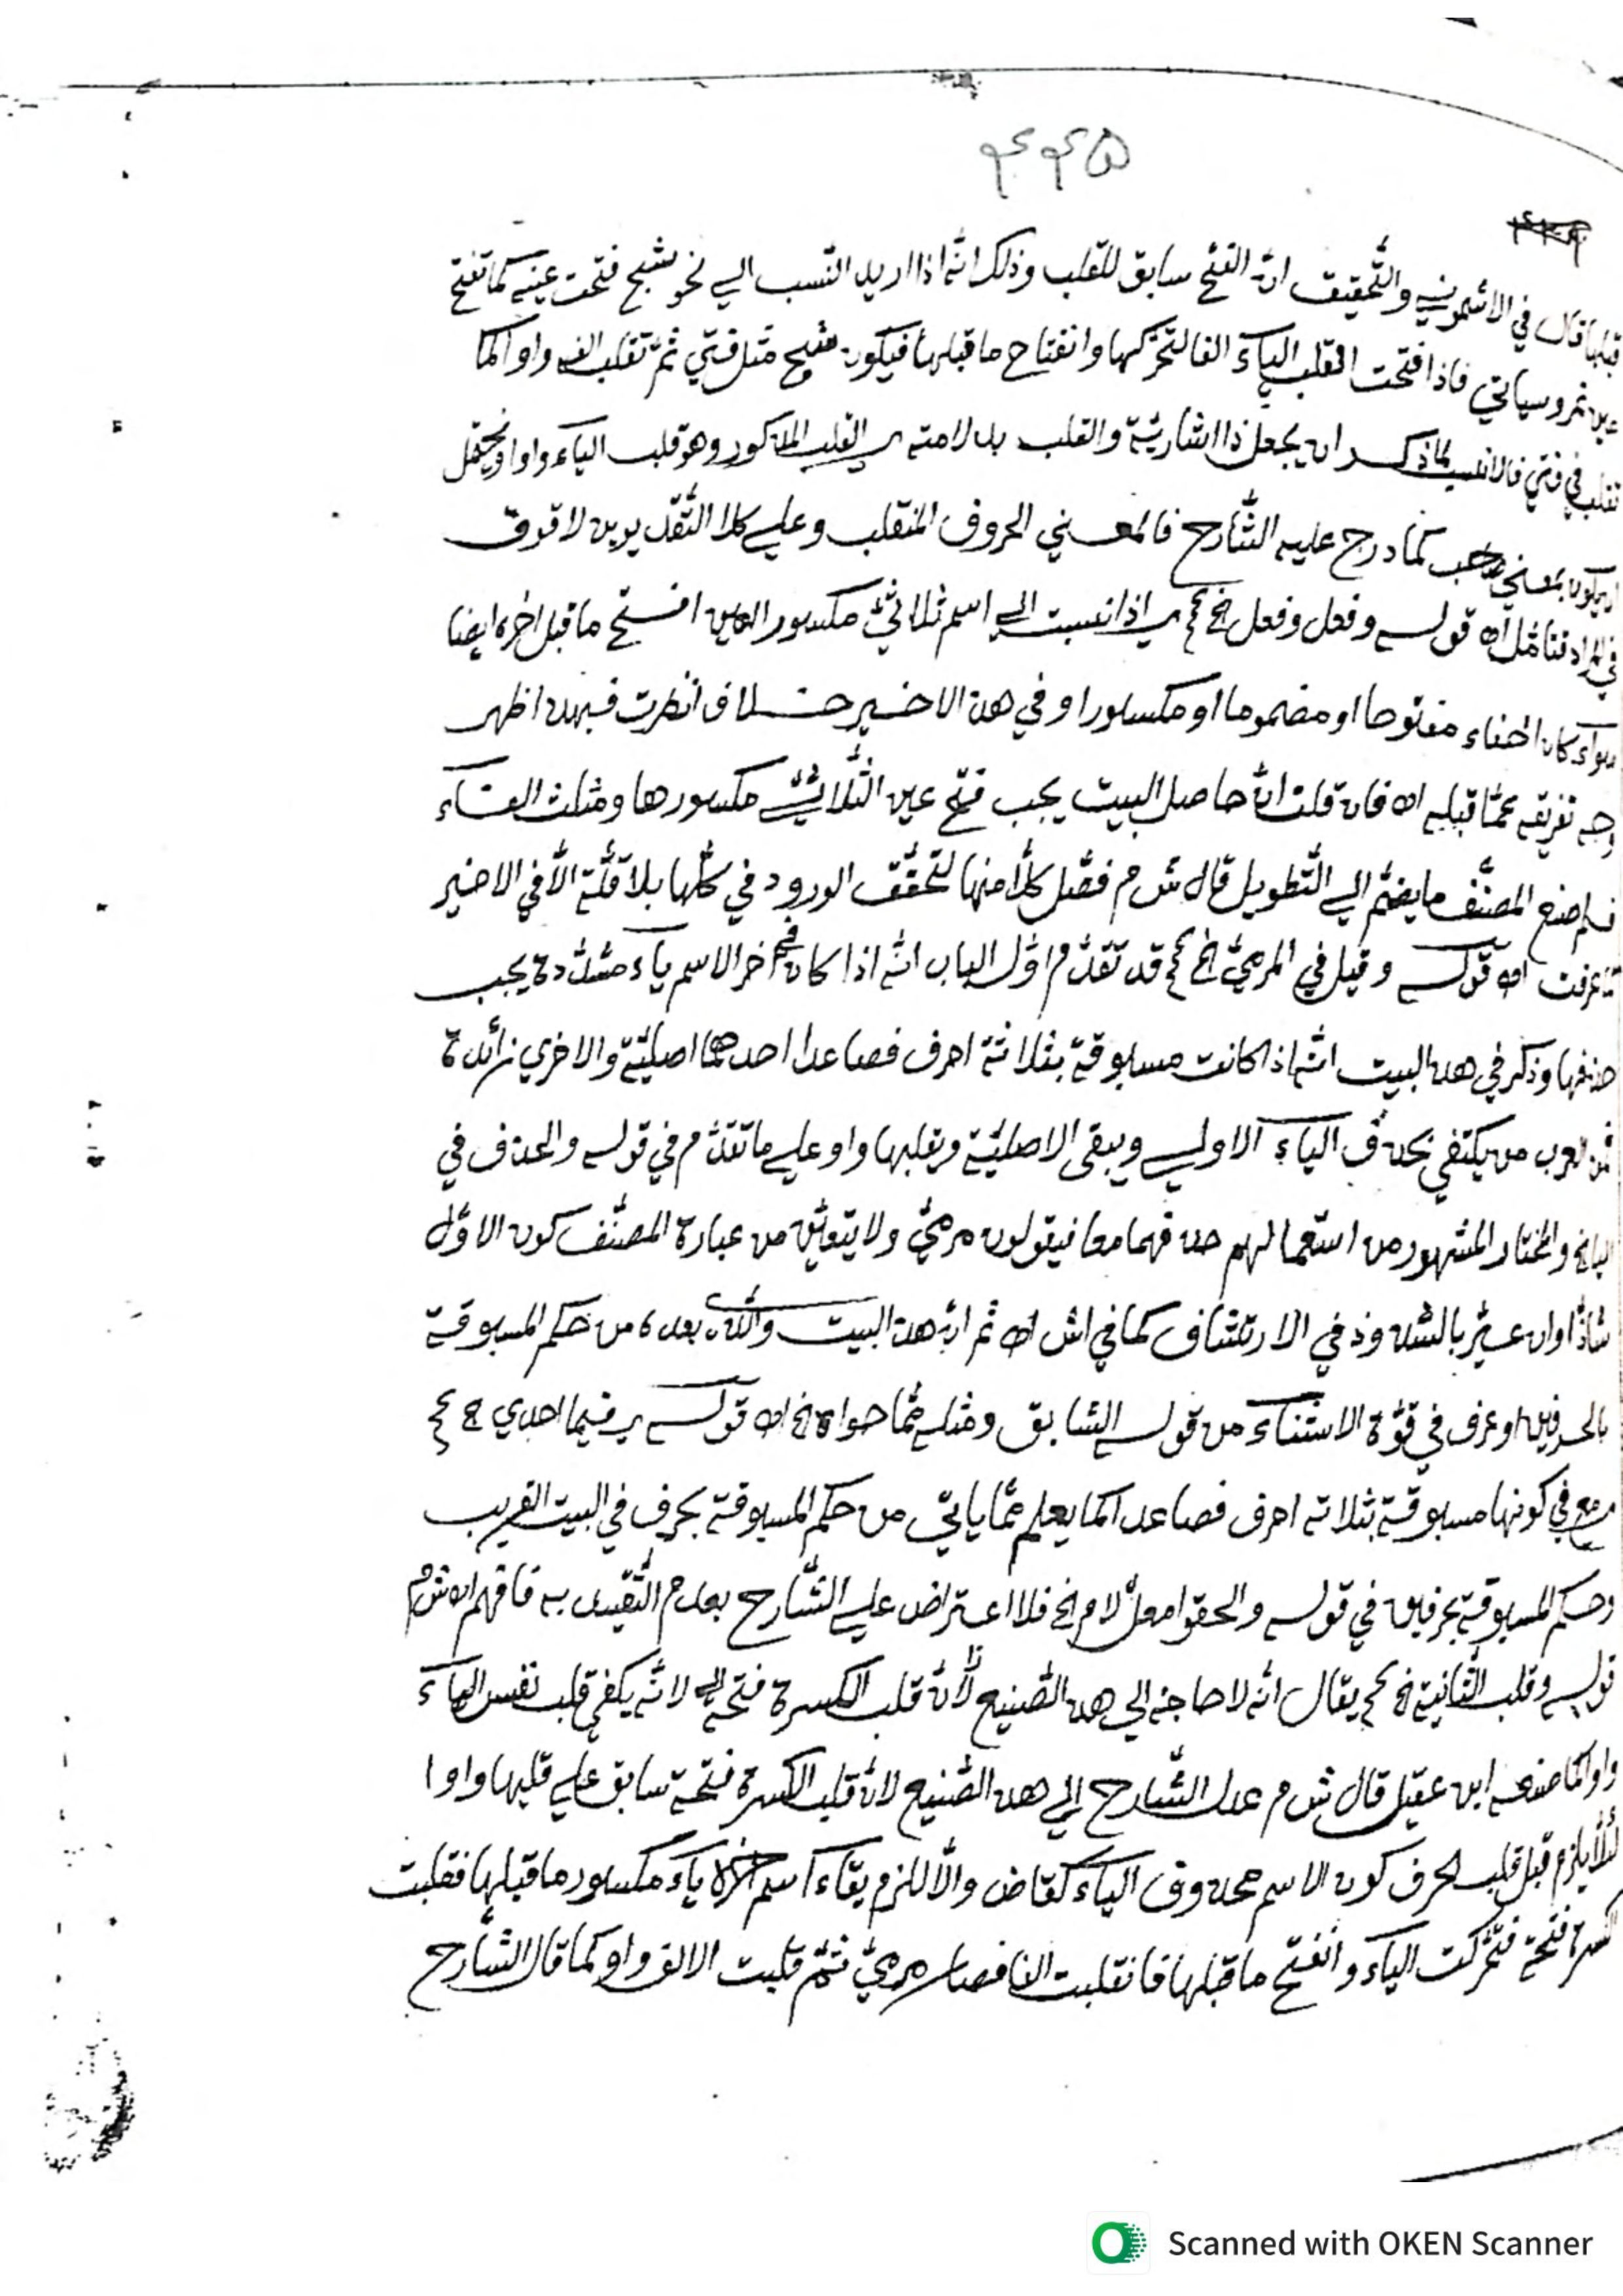 ٤٤٥
قبلها قال في الاشموني والتحقيق انّ الفتح سابق للقلب وذلك انّه اذا اريد النسب الي نحو شبح فتحت عينه كما تفتح
عين نمر وسياتي فاذا فتحت انقلب الياء الفا لتحركها وانفتاح ما قبلها فيكون شبح مثل فتي ثمّ تقلب الفه واوا كما
تقلب في فتي فالانسب لما ذكر ان يجعل ذا اشاريّة والقلب بدلا منه اي القلب المذكور وهو قلب الياء واوا ويحتمل
ان يكون بمعني صاحب كما درج عليه الشّارح فالمعني الحروف المنقلب وعلي كلا التّقديرين لا فرق
في المراد فتأمّل اه قوله وفعل وفعل الخ اي اذا نسبت الي اسم ثلاثيّ مكسور العين افتح ما قبل اخره ايضا
سواء كان الفاء مفتوحا او مضموما او مكسورا وفي هذا الاخير خلاف انظرت فيه اظهر
وجه تفريقه عمّا قبله اه فان قلت انّ حاصل البيت يجب فتح عين الثّلاثيّ مكسورها ومثلث الفاء
فلم صنع المصنّف ما يضمّ الي التّطويل قال ش م فصّل كلّا منها لتحقّق الورود في كلّها بلا قلّة الّا في الاخير
كما عرفت اه قوله وقيل في المرميّ الخ قد تقدّم اوّل الباب انّه اذا كان في اخر الاسم ياء مشدّدة يجب
حذفها وذكر في هذا البيت انّها اذا كانت مسبوقة بثلاثة احرف فصاعدا احدهما اصليّة والاخري زائدة
فمن العرب من يكتفي بحذف الياء الاولي ويبقي الاصليّة ويقلبها واو علي ما تقدّم في قوله والحذف في
اليا الخ والمختار المشهور من استعمالهم حذفهما معا فيقولون مرميّ ولا يتعيّن من عبارة المصنّف كون الاوّل
شاذّا وان عبّر بالشذوذ في الارتشاف كما في اش اه ثم انّ هذا البيت والّذي بعده من حكم المسبوقة
بالحرفين او حرف في قوّة الاستثناء من قوله السّابق ومثله ممّا حواه الخ اه قوله فيما احدي الخ
مرمي في كونها مسبوقة بثلاثة احرف فصاعدا كما يعلم ممّا ياتي من حكم المسبوقة بحرف في البيت القريب
وحكم المسبوقة بحرفين في قوله والحقوا معلّ لام الخ فلا اعتراض علي الشّارح بعدم التّقييد به فافهم اه ش م
قوله وقلب الثّانية الخ يقال انّه لا حاجة الي هذا الصّنيع لانّ قلب الكسرة فتحة الي لانّه يكفي قلب نفس الياء
واوا كما صنعه ابن عقيل قال ش م عدل الشّارح الي هذا الصّنيع لانّ قلب الكسرة فتحة سابق علي قلبها واوا
لئلّا يلزم قبل قلب الحرف كون الاسم محذوف الياء كقاض والّا للزم بقاء اسم اخره ياء مكسور ما قبلها فقلبت
الكسرة فتحة فتحرّكت الياء وانفتح ما قبلها فانقلبت الفا فصار مرميّ ثمّ قلبت الالف واو كما قال الشّارح
Scanned with OKEN Scanner